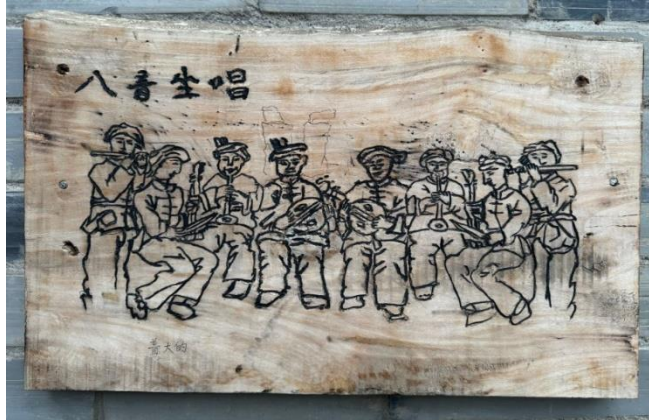 八音坐唱